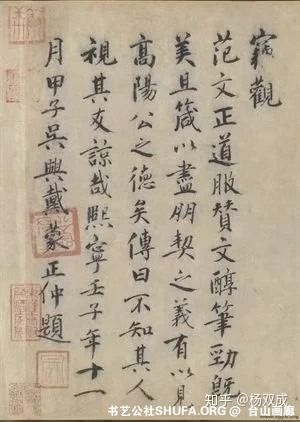 竊觀
范文正道服贊文醇筆勁既
美且箴以盡朋契之義有以見
髙陽公之德矣傳曰不知其人
視其友諒哉熙寧壬子年十一
月甲子吳興戴蒙正仲題
知乎 @杨双成
书艺公社SHUFA.ORG @ 台山画廊